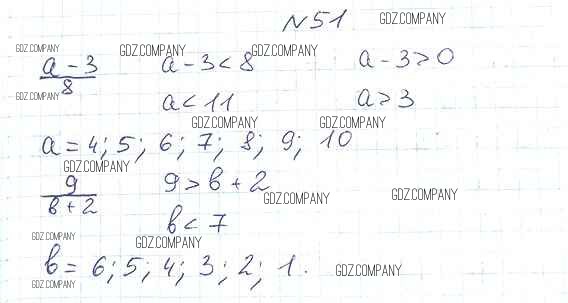 N51 GDZ.COMPANY
GDZ.COMPANY GDZ.COMPANY GDZ.COMPANY
a - 3 / 8 a - 3 < 8 a - 3 > 0
GDZ.COMPANY
a < 11 a > 3
GDZ.COMPANY GDZ.COMPANY
a = 4; 5; 6; 7; 8; 9; 10
GDZ.COMPANY
9 / в + 2 9 > в + 2
GDZ.COMPANY GDZ.COMPANY
в < 7
GDZ.COMPANY GDZ.COMPANY
в = 6; 5; 4; 3; 2; 1.
GDZ.COMPANY GDZ.COMPANY